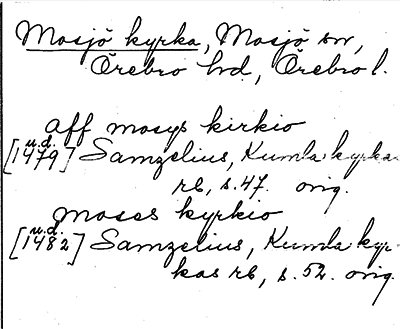 Mosjö kyrka, Mosjö sn,
Örebro hd, Örebro l.
aff mosys kirkio
u.d.
[1479] Samzelius, Kumla kyrkas
rb, s. 47. orig.
moses kyrkio
u.d.
[1482] Samzelius, Kumla kyr-
kas rb, s. 52. orig.